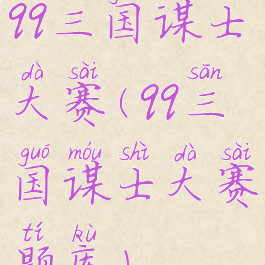 99三国谋士
dà sài sān
大赛(99三
guó móu shì dà sài
国谋士大赛
tí kù
题库)